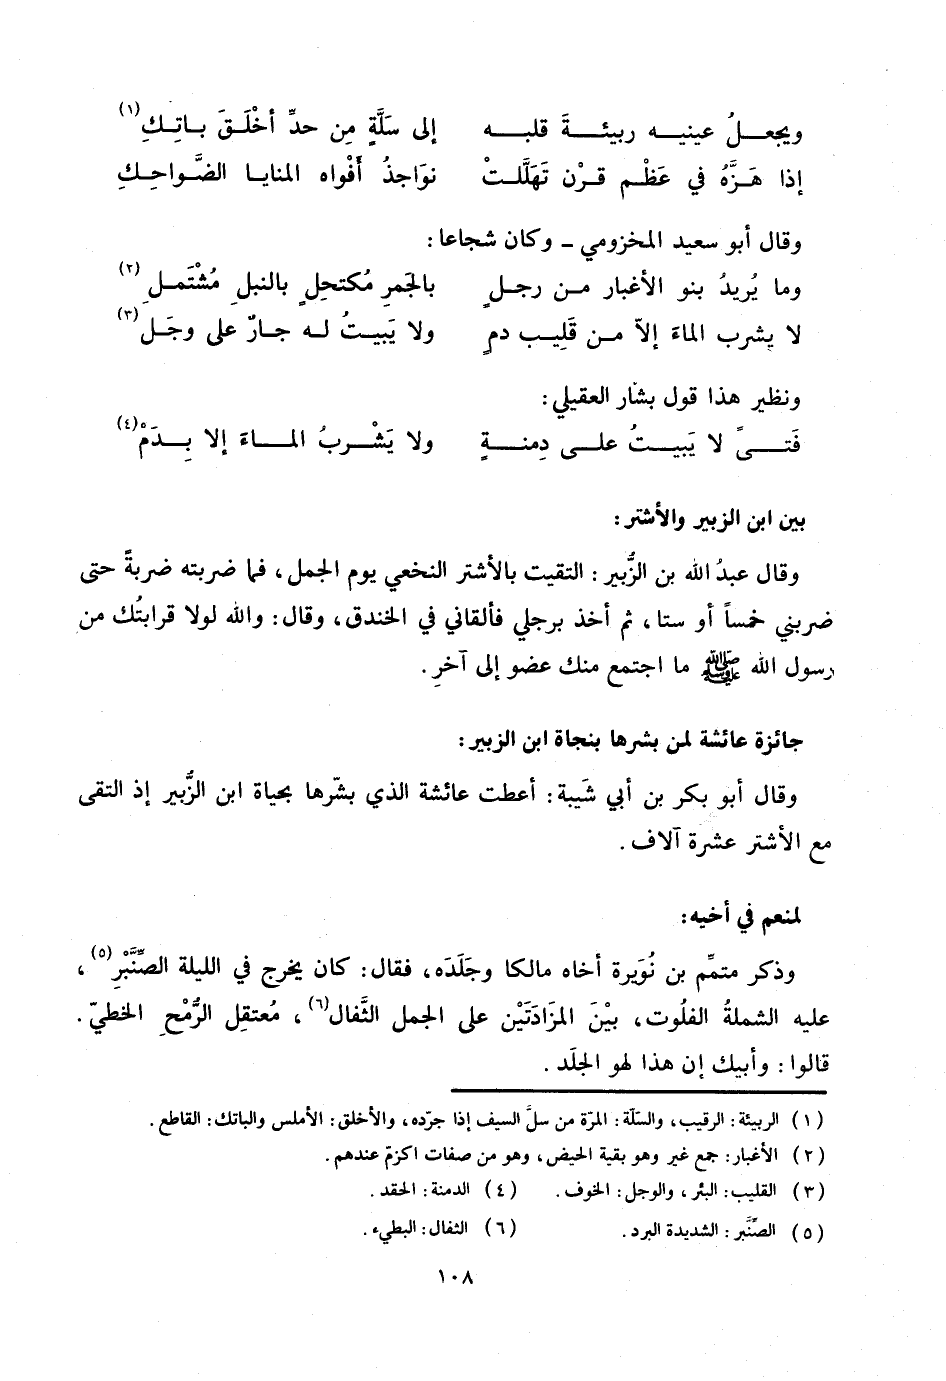 ويجعلُ عينيه ربيئةَ قلبه إلى سَلَّةٍ مِن حدِّ أخْلَقَ بـاتِكِ(١)
إذا هَزَّهُ في عَظْمِ قرْن تَهَلَّلتْ نوَاجذُ أفْواه المنايا الضَّواحِكِ
وقال أبو سعيد المخزومي ـ وكان شجاعا:
وما يُريدُ بنو الأغبار من رجلٍ بالجَمرِ مُكتحِلٍ بالنبلِ مُشْتَملِ(٢)
لا يشرب الماءَ إلاّ من قَلِيب دمٍ ولا يَبِيتُ له جارٌ على وجَل(٣)
ونظير هذا قول بشار العقيلي:
فَتىً لا يَبيتُ على دِمنةٍ ولا يَشْربُ الماءَ إلا بِدَمْ(٤)
بين ابن الزبير والأشتر:
وقال عبدُ الله بن الزُّبير: التقيت بالأشتر النخعي يوم الجمل، فما ضربته ضربةً حتى
ضربني خمساً أو ستا، ثم أخذ برجلي فألقاني في الخندق، وقال: والله لولا قرابتُك من
رسول الله ﷺ ما اجتمع منك عضو إلى آخرِ.
جائزة عائشة لمن بشرها بنجاة ابن الزبير:
وقال أبو بكر بن أبي شَيبة: أعطت عائشة الذي بشّرها بحياة ابن الزُّبير إذ التقى
مع الأشتر عشرة آلاف.
لمنعم في أخيه:
وذكر متمِّم بن نُوَيرة أخاه مالكا وجَلَدَه، فقال: كان يخرج في الليلة الصِّنَّبْرِ(٥)،
عليه الشملةُ الفلُوت، بيْنَ المزَادَتَيْن على الجمل الثَّفال(٦)، مُعتقِل الرُّمْحِ الخطيّ.
قالوا: وأبيك إن هذا لهو الجلَد.
(١) الربيئة: الرقيب، والسلّة: المرّة من سلَّ السيف إذا جرّده، والأخلق: الأملس والباتك: القاطع.
(٢) الأغبار: جمع غبر وهو بقية الحيض، وهو من صفات اكزمّ عندهم.
(٣) القليب: البئر، والوجل: الخوف. (٤) الدمنة: الحقد.
(٥) الصِّنَّبر: الشديدة البرد. (٦) الثفال: البطيء.
١٠٨